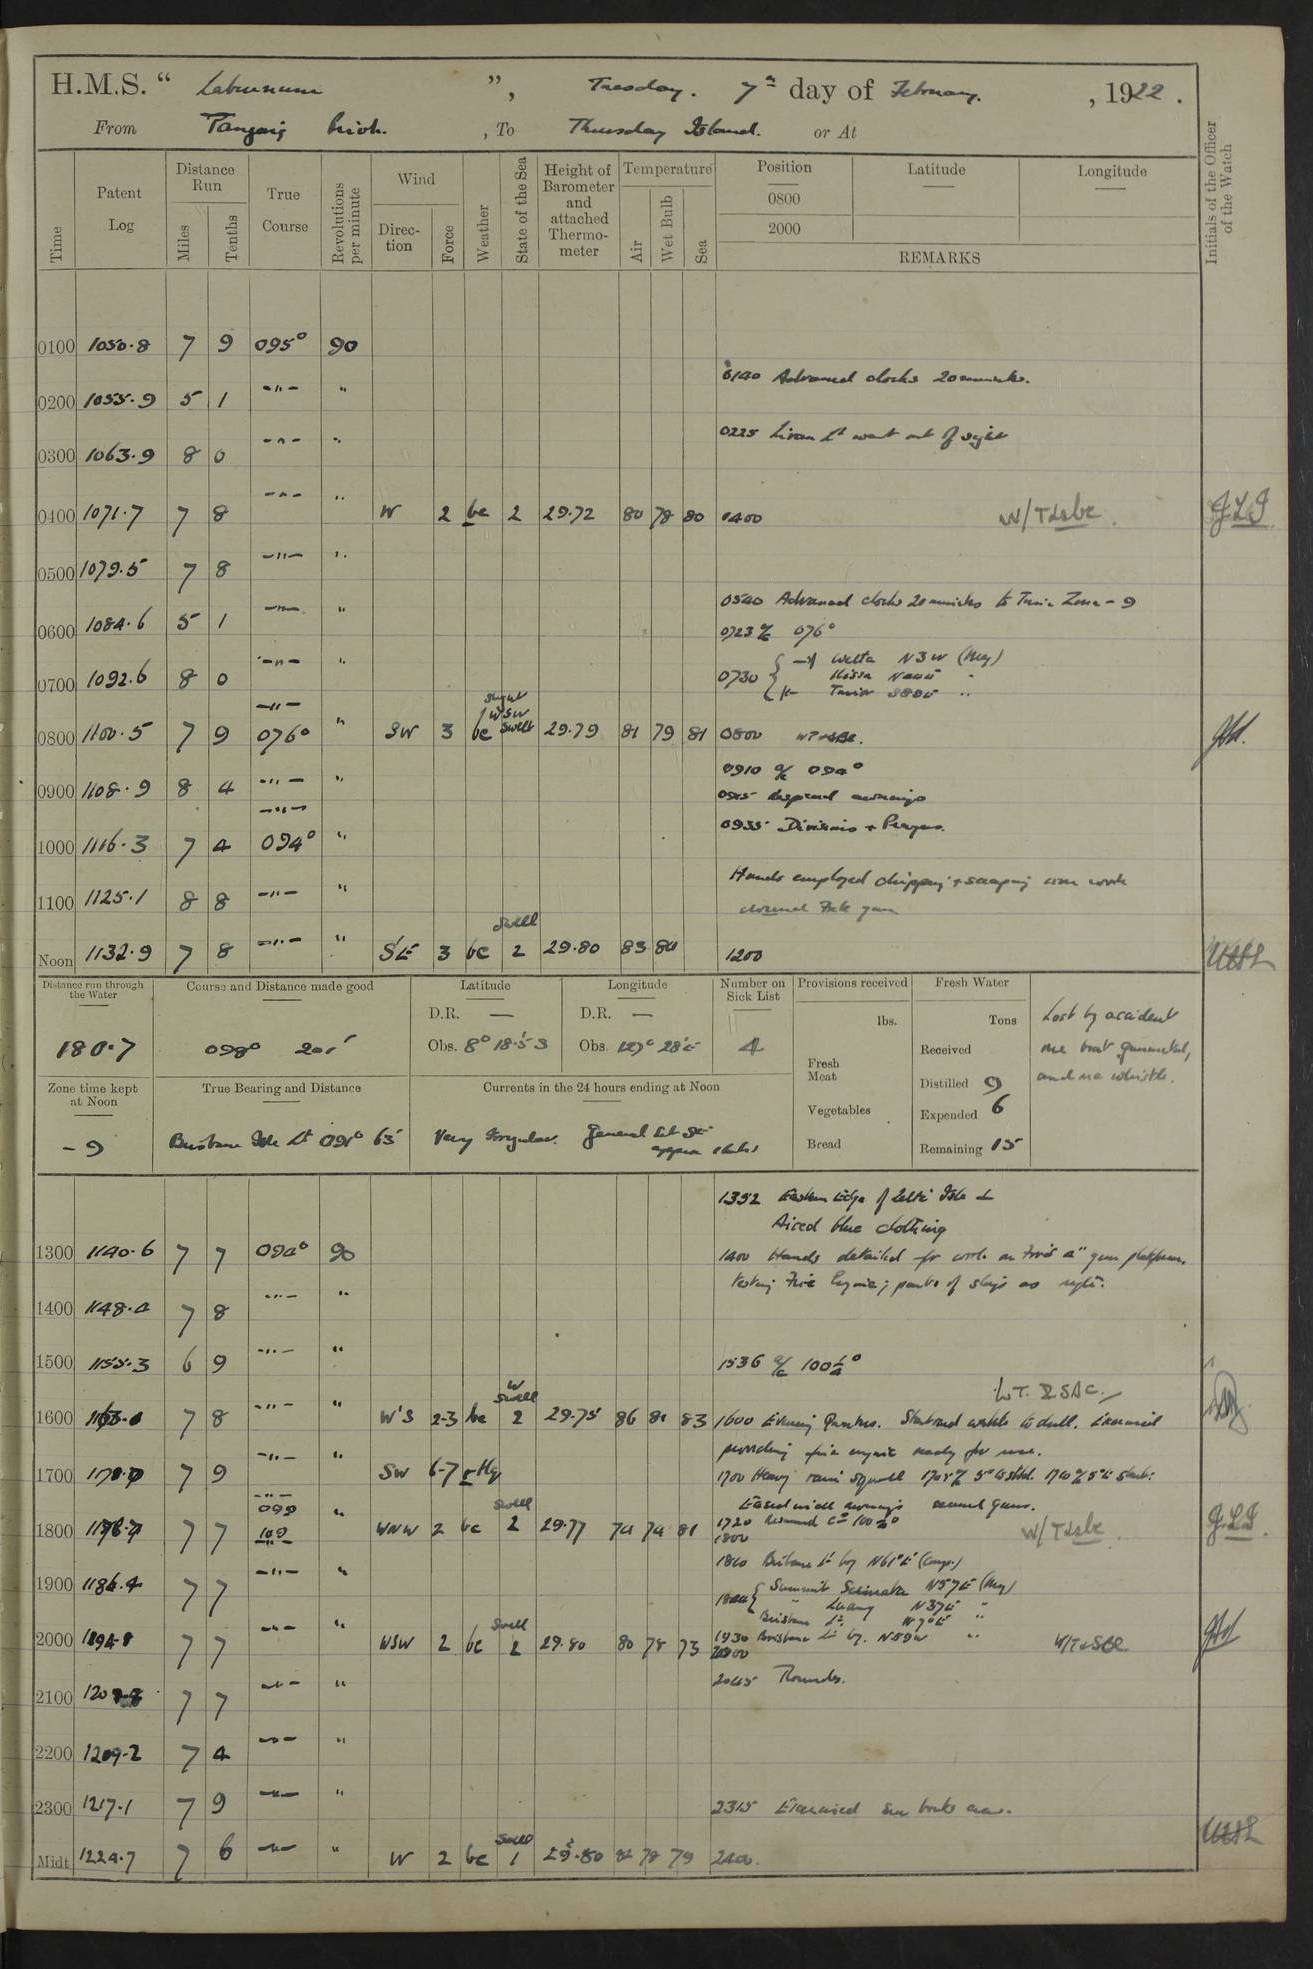 H.M.S. “ Laburnum ”, Tuesday. 7th day of February, 1922.
From Tanjong Priok. , To Thursday Island. or At
Time
Patent Log
Distance Run
Miles
Tenths
True Course
Revolutions per minute
Wind
Direction
Force
Weather
State of the Sea
Height of Barometer and attached Thermometer
Temperature
Air
Wet Bulb
Sea
Position
0800
2000
Latitude
Longitude
REMARKS
Initials of the Officer of the Watch
0100 1050.8 7 9 095° 90
0140 Advanced clocks 20 minutes.
0200 1055.9 5 1 —"— "
0225 Liran Lt went out of sight
0300 1063.9 8 0 —"— "
0400 1071.7 7 8 —"— " W 2 bc 2 29.72 80 78 80 0400
0500 1079.5 7 8 —"— "
0540 Advanced clocks 20 minutes to Time Zone -9
0600 1084.6 5 1 —"— "
0723 a/c 076°
0730 Wetta N3W (Mag)
Kissa
0700 1092.6 8 0 —"— "
0800 1100.5 7 9 076° " SW 3 bc slight WSW swell 29.79 81 79 81 0800
0910 a/c 094°
0900 1108.9 8 4 —"— "
awnings
0935 Divisions + Prayers.
1000 1116.3 7 4 094° "
Hands employed chipping + scraping iron work
cleaned gun
1100 1125.1 8 8 —"— "
Noon 1132.9 7 8 —"— " S'E 3 bc swell 2 29.80 83 80 1200
Distance run through the Water
180.7
Course and Distance made good
098° 201'
Latitude
D.R. —
Obs. 8° 18.5' S
Longitude
D.R. —
Obs. 127° 28' E
Number on Sick List
4
Provisions received
lbs.
Fresh Meat
Vegetables
Bread
Fresh Water
Tons
Received
Distilled 9
Expended 6
Remaining 15
Lost by accident
one boat gunmetal,
and one whistle.
Zone time kept at Noon
- 9
True Bearing and Distance
Brisbane Isle Lt 091° 65'
Currents in the 24 hours ending at Noon
Very Irregular. General Set
1352 Eastern Edge of Isle
Aired blue clothing
1300 1140.6 7 7 094° 90
1400 Hands detailed for work on 4" gun platform.
Testing Fire Engine; parts of ship as
1400 1148.4 7 8 —"— "
1500 1155.3 6 9 —"— "
1536 a/c 100½°
1600 7 8 —"— " W'S 2-3 bc W swell 2 29.75 86 81 83 1600 Evening Quarters. Starboard watch to drill. Exercised
providing fire engine ready for use.
1700 7 9 —"— " SW 6-7
1700 Heavy rain squall
awnings gun.
1800 7 7 099 109 " WNW 2 bc swell 2 29.77 74 74 81
1720 Resumed Co 100½°
1800
1810 Brisbane Lt by N61°E (comp.)
1900 1186.4 7 7 —"— "
Summit Sermata N57E (Mag)
" Luang N37E "
Brisbane Lt. N70E "
1930 Brisbane Lt by. N59W "
2000 1194.1 7 7 —"— " WSW 2 bc swell 2 29.80 80 78 73 2000
2045 Rounds.
2100 7 7 —"— "
2200 1209.2 7 4 —"— "
2300 1217.1 7 9 —"— "
2315 Exercised sea boats crew.
Midt 1224.7 7 6 —"— " W 2 bc swell 1 29.80 78 79 2400.